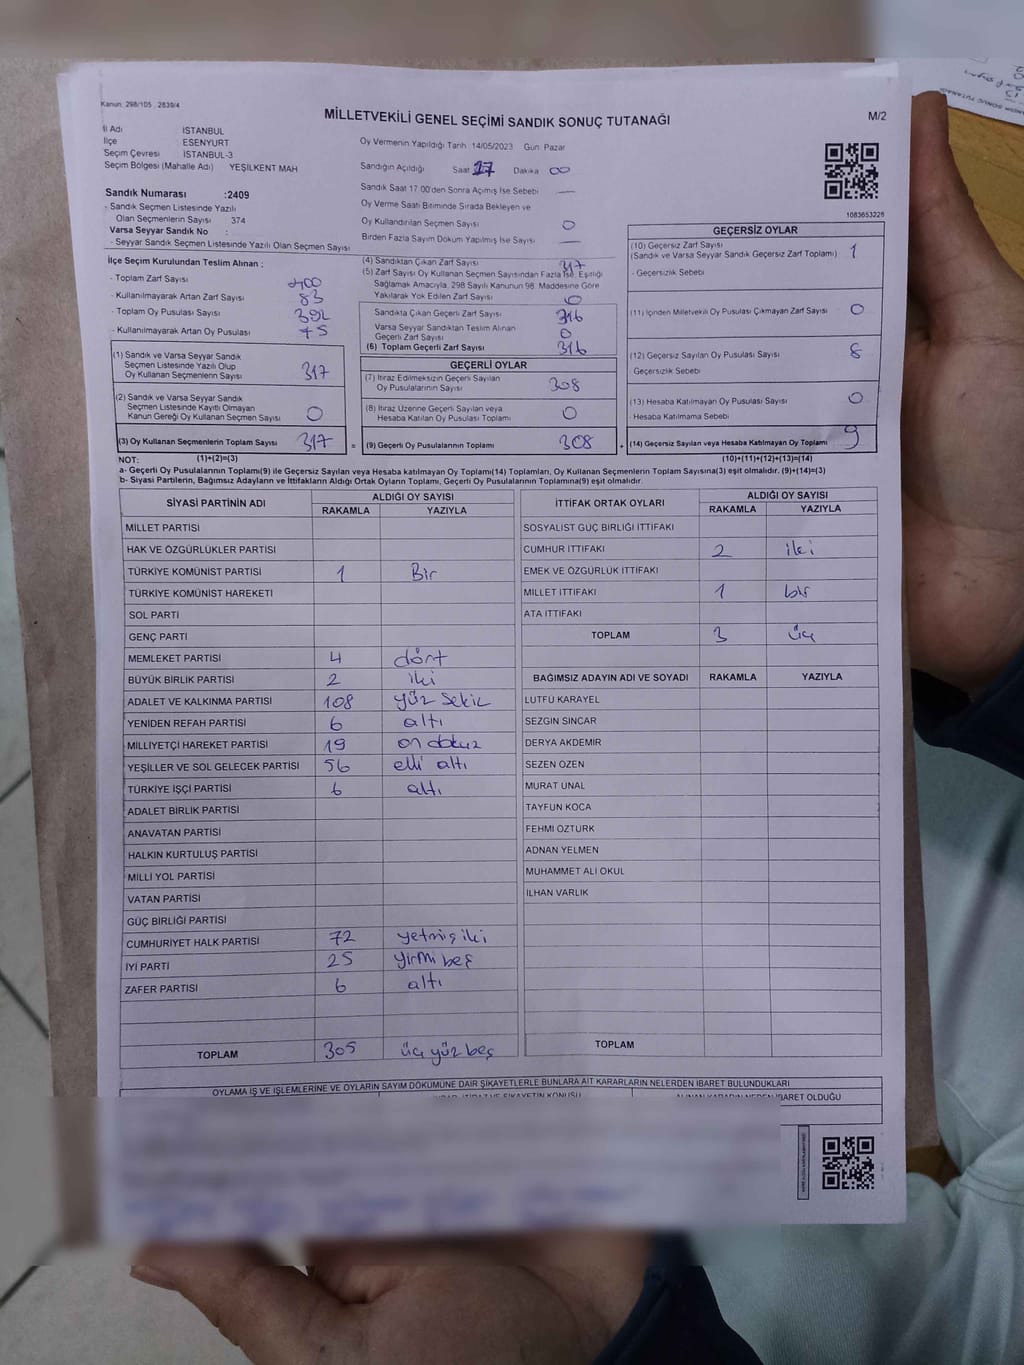 Kanun: 298/105 , 2839/4
MİLLETVEKİLİ GENEL SEÇİMİ SANDIK SONUÇ TUTANAĞI
M/2
İl Adı İSTANBUL
İlçe ESENYURT
Seçim Çevresi İSTANBUL-3
Seçim Bölgesi (Mahalle Adı) YEŞİLKENT MAH
Sandık Numarası :2409
- Sandık Seçmen Listesinde Yazılı
Olan Seçmenlerin Sayısı 374
Varsa Seyyar Sandık No :
- Seyyar Sandık Seçmen Listesinde Yazılı Olan Seçmen Sayısı
Oy Vermenin Yapıldığı Tarih 14/05/2023 Gün Pazar
Sandığın Açıldığı Saat 17 Dakika 00
Sandık Saat 17 00'den Sonra Açımış İse Sebebi —
Oy Verme Saati Bitiminde Sırada Bekleyen ve
Oy Kullandırılan Seçmen Sayısı 0
Birden Fazla Sayım Döküm Yapılmış İse Sayısı —
1083653226
İlçe Seçim Kurulundan Teslim Alınan ;
- Toplam Zarf Sayısı 400
- Kullanılmayarak Artan Zarf Sayısı 83
- Toplam Oy Pusulası Sayısı 392
- Kullanılmayarak Artan Oy Pusulası 75
(1) Sandık ve Varsa Seyyar Sandık
Seçmen Listesinde Yazılı Olup
Oy Kullanan Seçmenlerin Sayısı 317
(2) Sandık ve Varsa Seyyar Sandık
Seçmen Listesinde Kayıtlı Olmayan
Kanun Gereği Oy Kullanan Seçmen Sayısı 0
(3) Oy Kullanan Seçmenlerin Toplam Sayısı 317 =
(4) Sandıktan Çıkan Zarf Sayısı 317
(5) Zarf Sayısı Oy Kullanan Seçmen Sayısından Fazla İse, Eşitliği
Sağlamak Amacıyla, 298 Sayılı Kanunun 98. Maddesine Göre
Yakılarak Yok Edilen Zarf Sayısı 0
Sandıkta Çıkan Geçerli Zarf Sayısı 316
Varsa Seyyar Sandıktan Teslim Alınan
Geçerli Zarf Sayısı 0
(6) Toplam Geçerli Zarf Sayısı 316
GEÇERLİ OYLAR
(7) İtiraz Edilmeksizin Geçerli Sayılan
Oy Pusulalarının Sayısı 308
(8) İtiraz Üzerine Geçerli Sayılan veya
Hesaba Katılan Oy Pusulası Toplamı 0
(9) Geçerli Oy Pusulalarının Toplamı 308 +
GEÇERSİZ OYLAR
(10) Geçersiz Zarf Sayısı
(Sandık ve Varsa Seyyar Sandık Geçersiz Zarf Toplamı) 1
- Geçersizlik Sebebi
(11) İçinden Milletvekili Oy Pusulası Çıkmayan Zarf Sayısı 0
(12) Geçersiz Sayılan Oy Pusulası Sayısı 8
Geçersizlik Sebebi
(13) Hesaba Katılmayan Oy Pusulası Sayısı 0
Hesaba Katılmama Sebebi
(14) Geçersiz Sayılan veya Hesaba Katılmayan Oy Toplamı 9
NOT: (1)+(2)=(3) (10)+(11)+(12)+(13)=(14)
a- Geçerli Oy Pusulalarının Toplamı(9) ile Geçersiz Sayılan veya Hesaba katılmayan Oy Toplamı(14) Toplamları, Oy Kullanan Seçmenlerin Toplam Sayısına(3) eşit olmalıdır. (9)+(14)=(3)
b- Siyasi Partilerin, Bağımsız Adayların ve İttifakların Aldığı Ortak Oyların Toplamı, Geçerli Oy Pusulalarının Toplamına(9) eşit olmalıdır.
SİYASİ PARTİNİN ADI ALDIĞI OY SAYISI
RAKAMLA YAZIYLA
MİLLET PARTİSİ
HAK VE ÖZGÜRLÜKLER PARTİSİ
TÜRKİYE KOMÜNİST PARTİSİ 1 Bir
TÜRKİYE KOMÜNİST HAREKETİ
SOL PARTİ
GENÇ PARTİ
MEMLEKET PARTİSİ 4 dört
BÜYÜK BİRLİK PARTİSİ 2 iki
ADALET VE KALKINMA PARTİSİ 108 yüz sekiz
YENİDEN REFAH PARTİSİ 6 altı
MİLLİYETÇİ HAREKET PARTİSİ 19 on dokuz
YEŞİLLER VE SOL GELECEK PARTİSİ 56 elli altı
TÜRKİYE İŞÇİ PARTİSİ 6 altı
ADALET BİRLİK PARTİSİ
ANAVATAN PARTİSİ
HALKIN KURTULUŞ PARTİSİ
MİLLİ YOL PARTİSİ
VATAN PARTİSİ
GÜÇ BİRLİĞİ PARTİSİ
CUMHURİYET HALK PARTİSİ 72 yetmiş iki
İYİ PARTİ 25 yirmi beş
ZAFER PARTİSİ 6 altı
TOPLAM 305 üç yüz beş
İTTİFAK ORTAK OYLARI ALDIĞI OY SAYISI
RAKAMLA YAZIYLA
SOSYALİST GÜÇ BİRLİĞİ İTTİFAKI
CUMHUR İTTİFAKI 2 iki
EMEK VE ÖZGÜRLÜK İTTİFAKI
MİLLET İTTİFAKI 1 bir
ATA İTTİFAKI
TOPLAM 3 üç
BAĞIMSIZ ADAYIN ADI VE SOYADI RAKAMLA YAZIYLA
LÜTFÜ KARAYEL
SEZGİN SİNCAR
DERYA AKDEMİR
SEZEN ÖZEN
MURAT ÜNAL
TAYFUN KOCA
FEHMİ ÖZTÜRK
ADNAN YELMEN
MUHAMMET ALİ OKUL
İLHAN VARLIK
TOPLAM
OYLAMA İŞ VE İŞLEMLERİNE VE OYLARIN SAYIM DÖKÜMÜNE DAİR ŞİKAYETLERLE BUNLARA AİT KARARLARIN NELERDEN İBARET BULUNDUKLARI
İBARET OLDUĞU